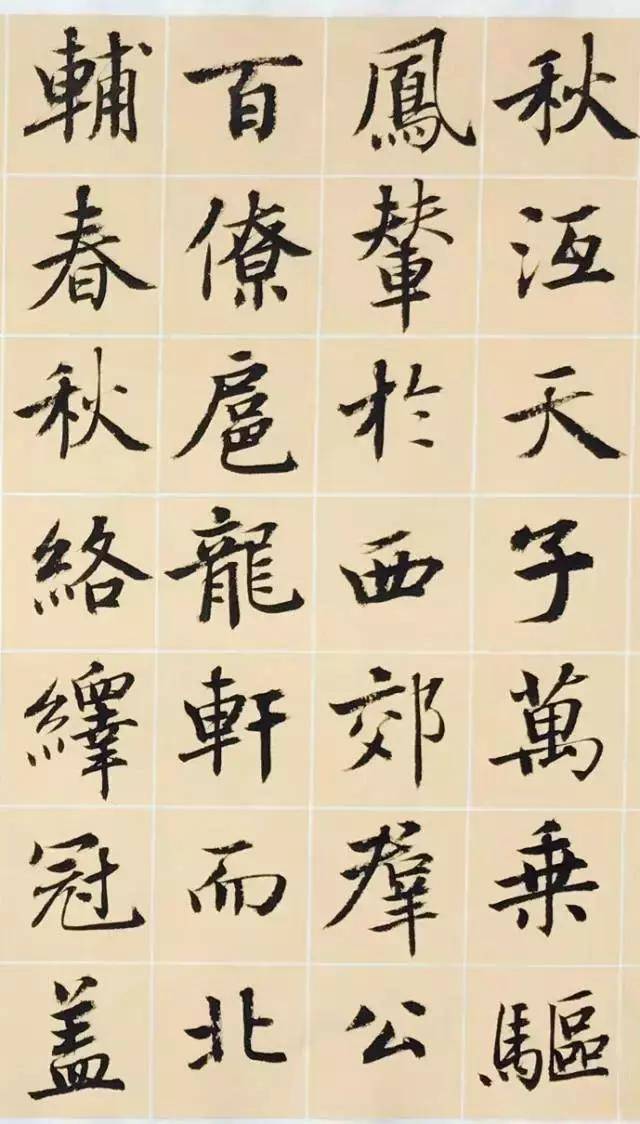 秋沍天子萬乗驅
鳳輦於西郊羣公
百僚扈龍軒而北
輔春秋絡繹冠盖